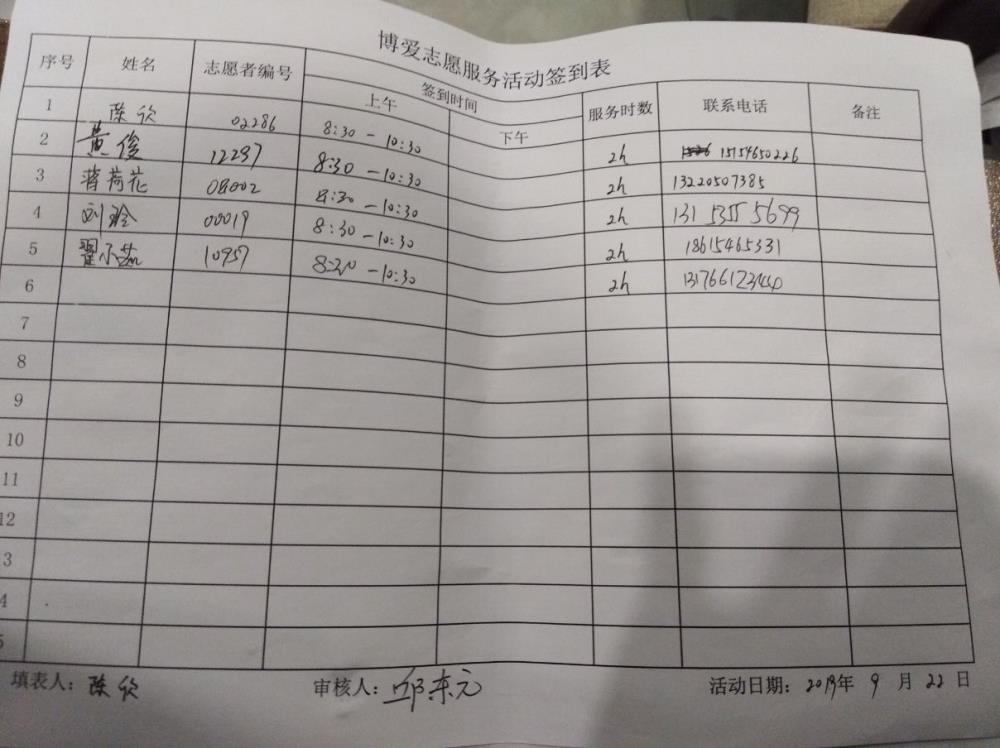 博爱志愿服务活动签到表
序号 姓名 志愿者编号 签到时间 服务时数 联系电话 备注
上午 下午
1 陈欣 02286 8:30-10:30 2h 15154650226
2 黄俊 12297 8:30-10:30 2h 13220507385
3 蒋荷花 08002 8:30-10:30 2h 131 5355 5699
4 刘玲 00019 8:30-10:30 2h 18615465331
5 翟小茹 10957 8:30-10:30 2h
6
7
8
9
10
11
12
3
4
5
填表人: 陈欣 审核人: 邱东元 活动日期: 2019年 9 月 22 日